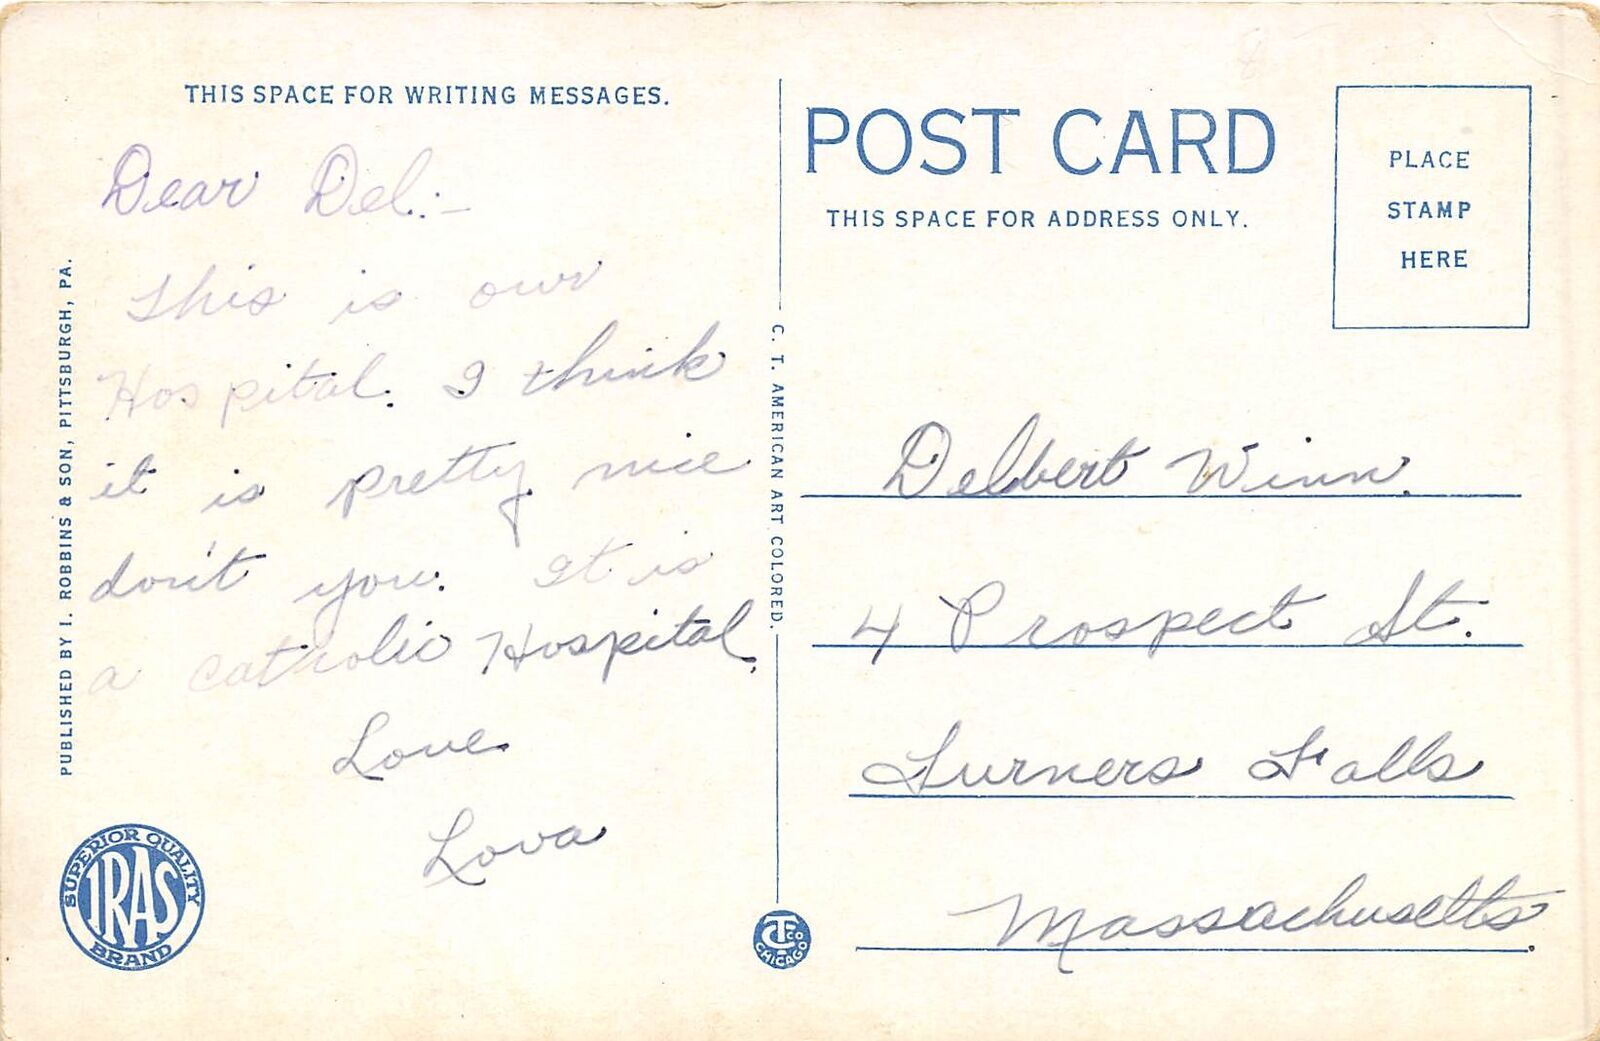 THIS SPACE FOR WRITING MESSAGES.
Dear Del:-
This is our
Hospital. I think
it is pretty nice
don't you. It is
a catholic Hospital.
Love
Lova
PUBLISHED BY I. ROBBINS & SON, PITTSBURGH, PA.
SUPERIOR QUALITY
IRAS
BRAND
C. T. AMERICAN ART COLORED.
CT CO
CHICAGO
POST CARD
THIS SPACE FOR ADDRESS ONLY.
PLACE
STAMP
HERE
Delbert Winn.
4 Prospect St.
Turners Falls
Massachusetts.